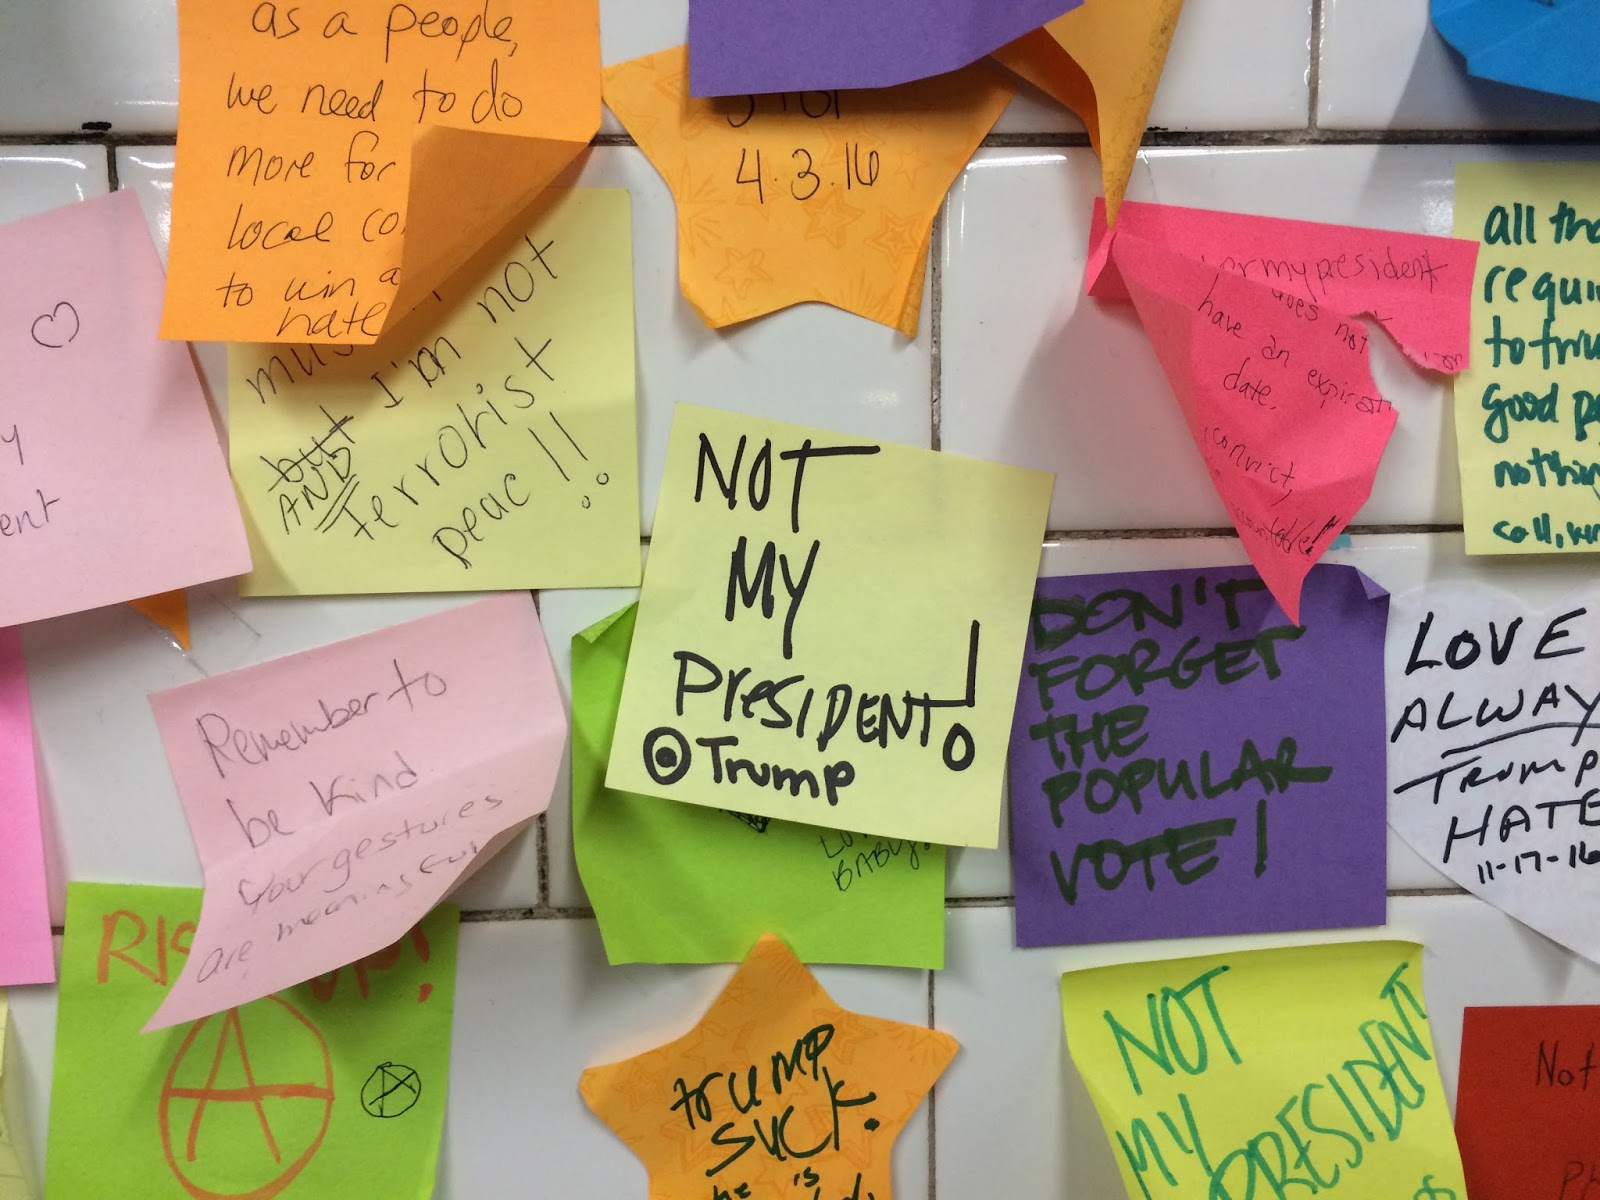 as a people,
we need to do
more for
local co
to win a
hate
4.3.16
I'm not
but
AND
terrorist
peac!!
my president
does not
have an
expirati
date.
convict,
all tha
requi
to triu
good pe
nothin
ent
NOT
MY
PresIDENT!
Trump
DON'T
FORGET
THE
POPULAR
VOTE!
LOVE
ALWAY
Trump
HATE
11-17-16
Remember to
be kind
Your gestures
are meaningful
BABY!
RIS UP!
A
A
trump
suck.
he is
NOT
MY
PRESIDENT
Not